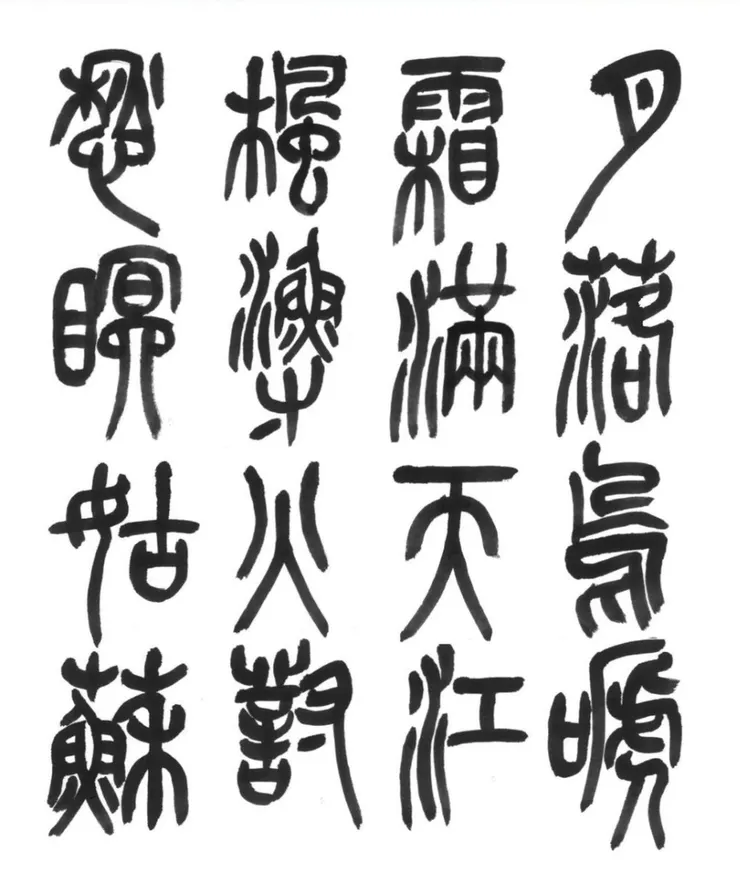 月落烏嗁
霜滿天江
楓漁火對
愁瞑姑蘇